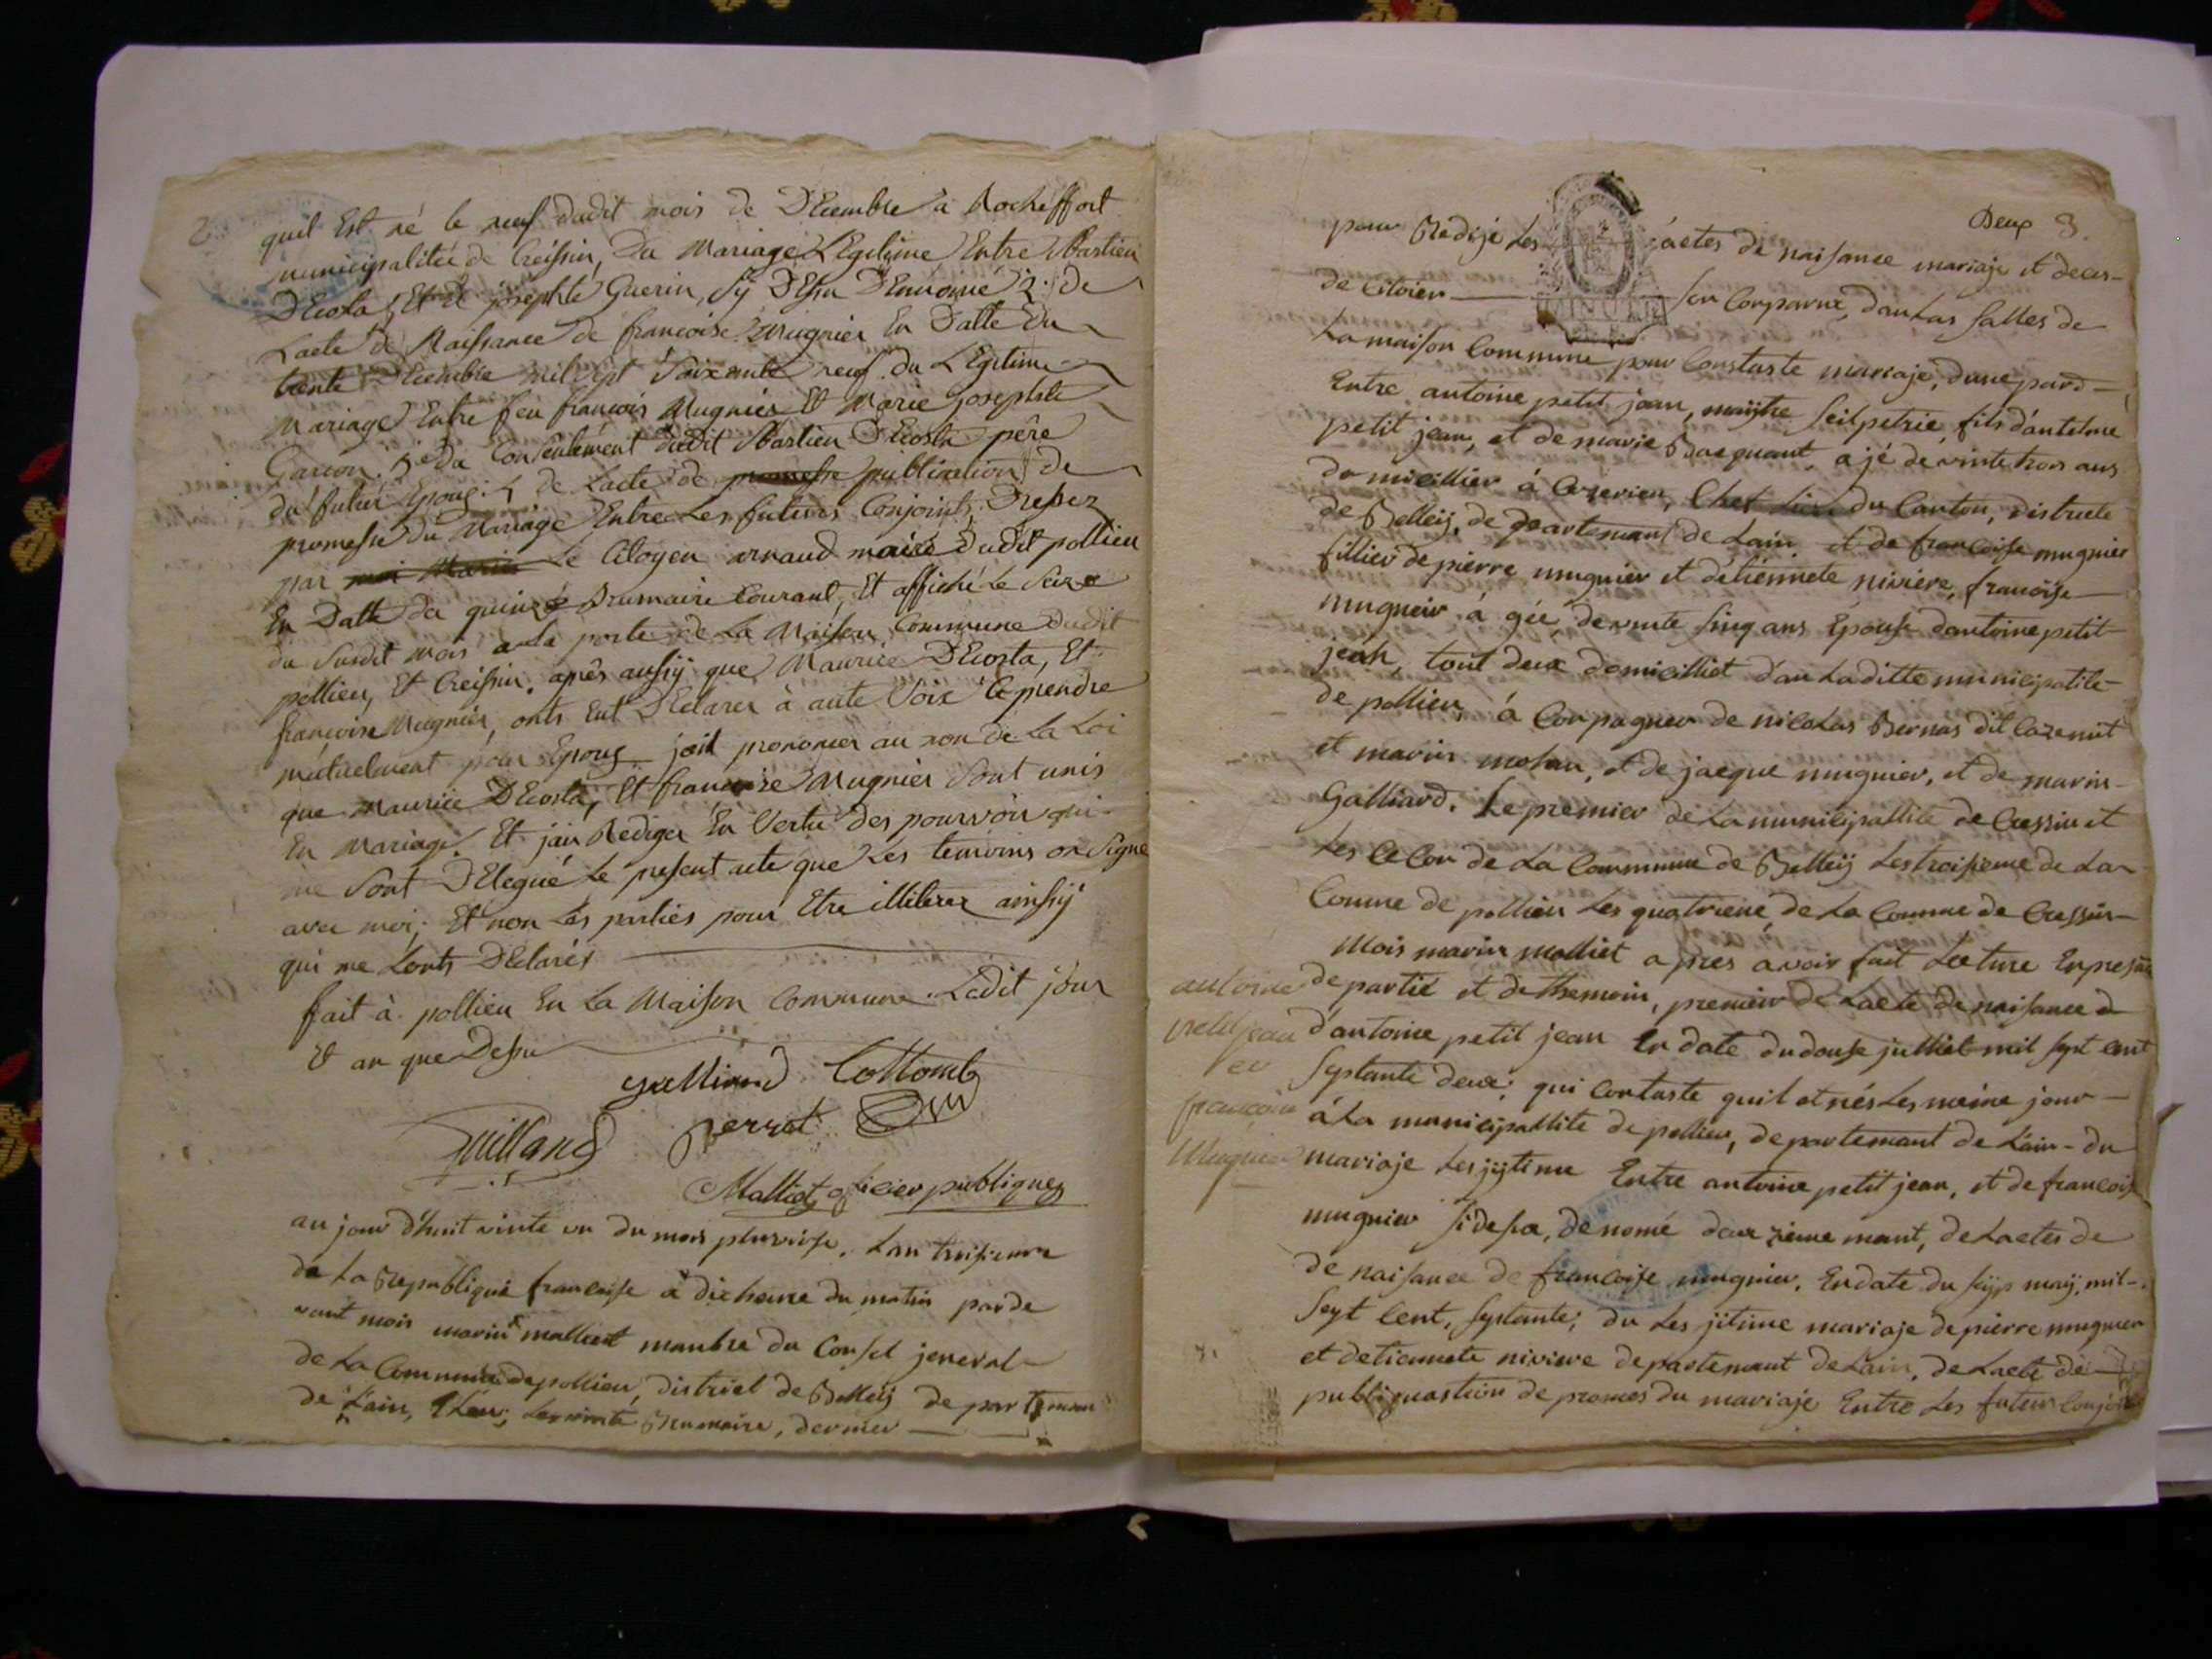 2
quil Est né le neuf dudit mois de DEcembre a Rocheffort
municipalitée de Creissin, Du Mariage LEgitime Entre Bastien
DEcosta, Et de josephte Guerin, sÿ DEssu DEnommé 2.º De
Lacte de Naissance de francoise Mugnier En Datte Du
trente DEcembre mil sept soixante neuf. du LEgitime
Mariage Entre feu francois Mugnier Et Marie josephte
Garcon. 3.º du Consentement dudit Bastien DEcosta père
du futur Epoug. 4 De Lacte de promesse publication de
promesse Du Mariage Entre Les futurs Conjoints, Dressez
par moi Marin Le Citoyen arnaud maire Dudit pollieu
En Datte du quinze Brumaire Courant, Et affiché Le seize
du susdit mois a La porte de La Maison Commune Dudit
pollieu, Et Creissin. après aussÿ que Maurice DEcosta, Et
francoise Mugnier, onts Eut DEclarer à aute Voix ce prendre
mutuelement pour Epoug jait prononcer au nom de La Loi
que Maurice DEcosta, Et francoise Mugnier sont unis
En Mariage. Et jais Rediger En Vertu Des pourvoir qui
me sont DElegué Le present acte que Les temoins on signe
avec moi; Et non Les parties pour Etre illiterer ainssÿ
qui me Lonts DEclarés
fait à pollieu En La Maison Commune. Ledit jour
Et an que Dessu
galliand Collomb
Guilland perret
Malliet oficier publique
au jour d'huit vinte un du mois pluviose. Lan troisieme
de La Republique francaise à dix heure du matin par de
vant mois marin malliet manbre du Consel jeneral
de La Commune de pollieu, district de Belleÿ de partemant
de Lain, Eleu, Les vinte Brumaire, dernier
Deux 3.
pour Redije Les actes de naisance mariaje et deces
de Citoien son Comparue, dan Las salles de
La maison Commune pour Constaste mariaje, dune pard
Entre antoine petit jean, maijtre seilpetrié, fils d'antelme
petit jean, et de marie Bacquant, ajé de vinte trois ans
domicillier á Ceyzerieu, Chef Lieu du Canton, districte
de Belleÿ, de partemant de Lain et de francoise mugnier
fillier de pierre mugnier et d'étiennete niviere, francoise
mugneir á gée, de vinte sinq ans Epouse dantoine petit
jean, tout deux domicilliet d'an Laditte municipalité
de pollieu, á Compagner de nicolas Bernas dit Cazenut
et marin mohan, et de jacque mugnier, et de marin
Galliard. Le premier de La municipallite de Cressin et
Les Ce Con de La Commune de Belleÿ Les troisieme de La
Comune de pollieu Les quatrieme de La Comune de Cressin
mois marin malliet apres avoir fait Lecture En presan
de partié et de themoin, premier de Lacte de naisance d
d'antoine petit jean En date du douse julliet mil sept cent
septante deux; qui Contaste quil et nés Les meime jour
á La municipallite de pollieu, departemant de Lain - du
mariaje Lesjitime Entre antoine petit jean, et de francois
mugnier si desa, de nomé deuxzieme mant, de Lactes de
de naisance de francoise mugnier. En date du six maÿ, mil
sept Cent, septante; du Les jitime mariaje de pierre mugnier
et detiennete niviere departemant de Lain, de Lacte de
publiquastion de promes du mariaje Entre Les futur Conjoin
antoine
petit jean
et
francoise
Mugnier